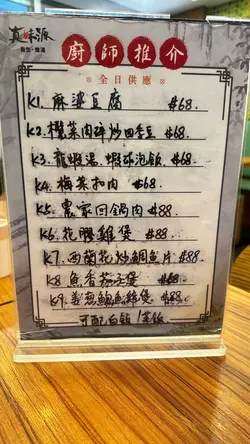 真味源
養生·燉湯
廚師推介
※全日供應※
K1. 麻婆豆腐 $68.
K2. 欖菜肉碎炒四季豆 $68.
K3. 龍蝦湯.蝦球泡飯 $68.
K4. 梅菜扣肉 $68.
K5. 農家回鍋肉 $88.
K6. 花膠雞煲 $88.
K7. 西蘭花炒鯛魚片 $88.
K8 魚香茄子煲 $88.
K9. 姜蔥鮑魚雞煲 $88.
可配白飯/